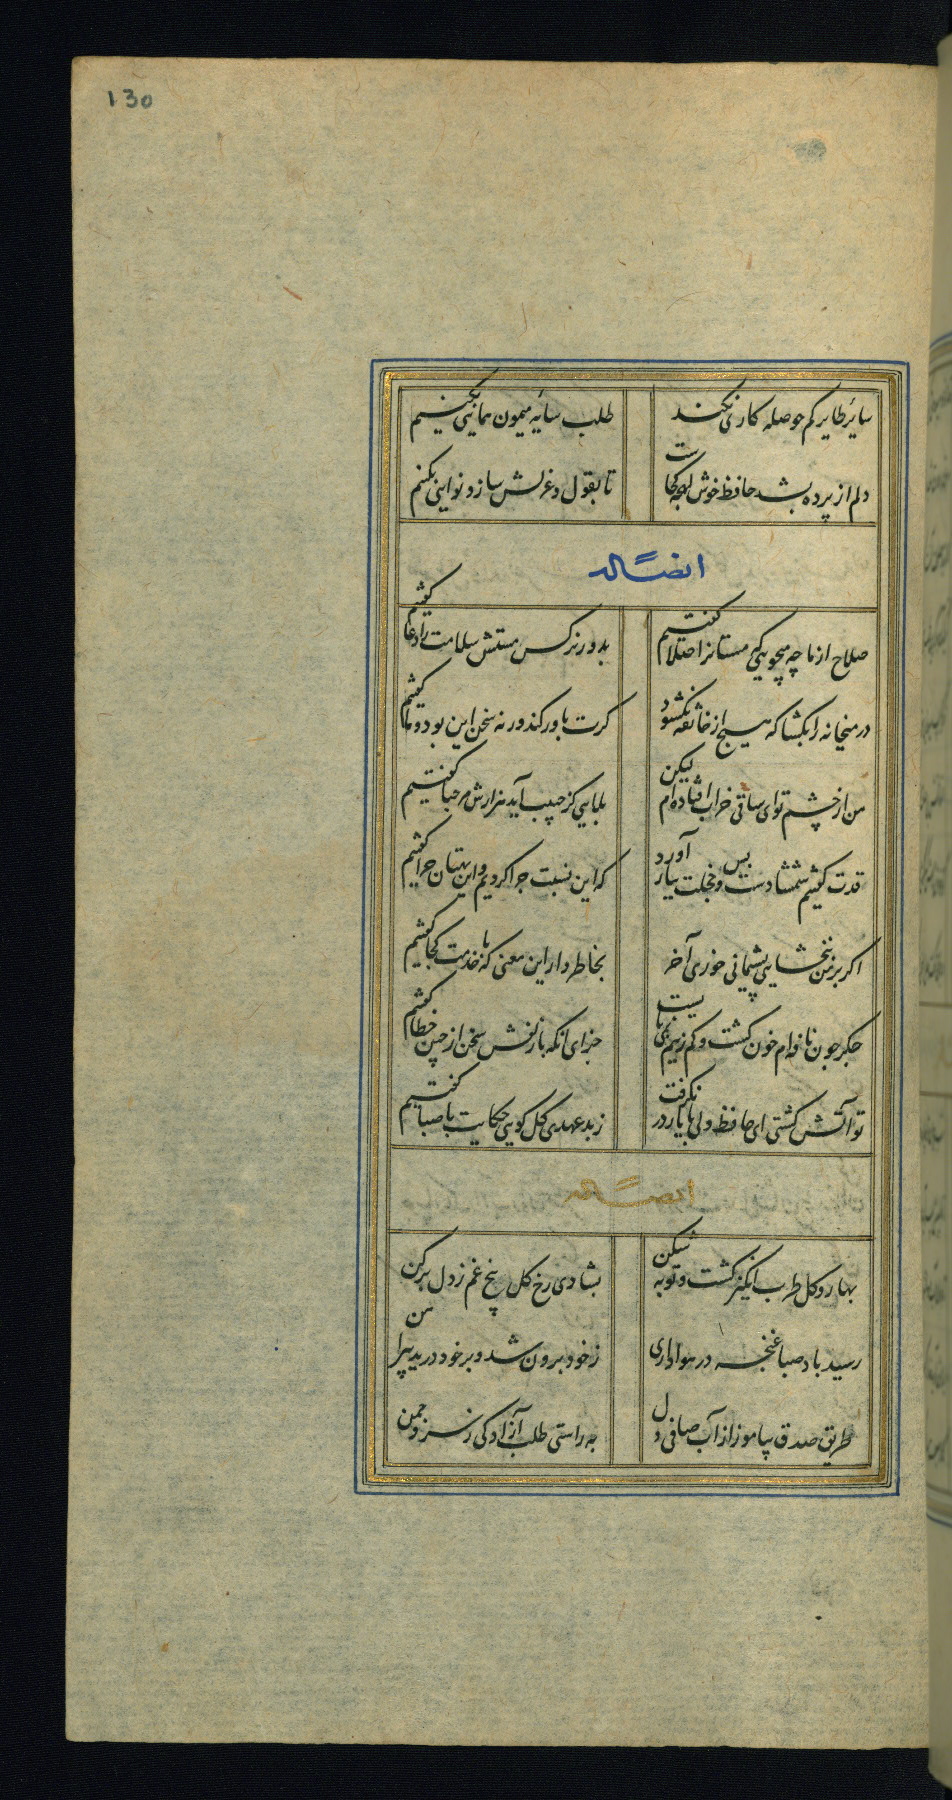 130
سایهٔ طایر کم حوصله کاری نکند
طلب سایهٔ میمون همایی بکنیم
دلم از پرده بشد حافظ خوش لهجه کجاست
تا بقول و غزلش ساز و نوایی بکنیم
ایضاً له
صلاح از ما چه میجویی که مستانرا صلا گفتیم
بدور نرکس مستش سلامت را دعا گفتیم
در میخانه را بکشا که هیچ از خانقه نکشود
کرت باور کند ورنه سخن این بود و ما گفتیم
من از چشم تو ای ساقی خراب افتاده‌ام لیکن
بلایی کز حبیب آید هزارش مرحبا گفتیم
قدت گفتیم شمشادست و بس خجلت ببار آورد
که این نسبت چرا کردیم و این بهتان چرا گفتیم
اکر بر من نبخشایی پشیمانی خوری آخر
بخاطر دار این معنی که با خدمت کجا گفتیم
جکر جون نافه‌ام خون کشت و کم زینم نمی‌بایست
جزای آنکه با زلفش سخن از چین خطا گفتیم
تو آتش کشتی ای حافظ ولی با یار در نکرفت
ز بدعهدی کل کویی حکایت با صبا گفتیم
ایضاً له
بهار و کل طرب انکیز کشت و توبه شکن
بشادی رخ کل بیخ غم ز دل برکن
رسید باد صبا غنچه در هواداری
ز خود برون شد و بر خود درید پیراهن
طریق صدق بیاموز از آب صافی دل
به راستی طلب آزادکی ز سرو چمن